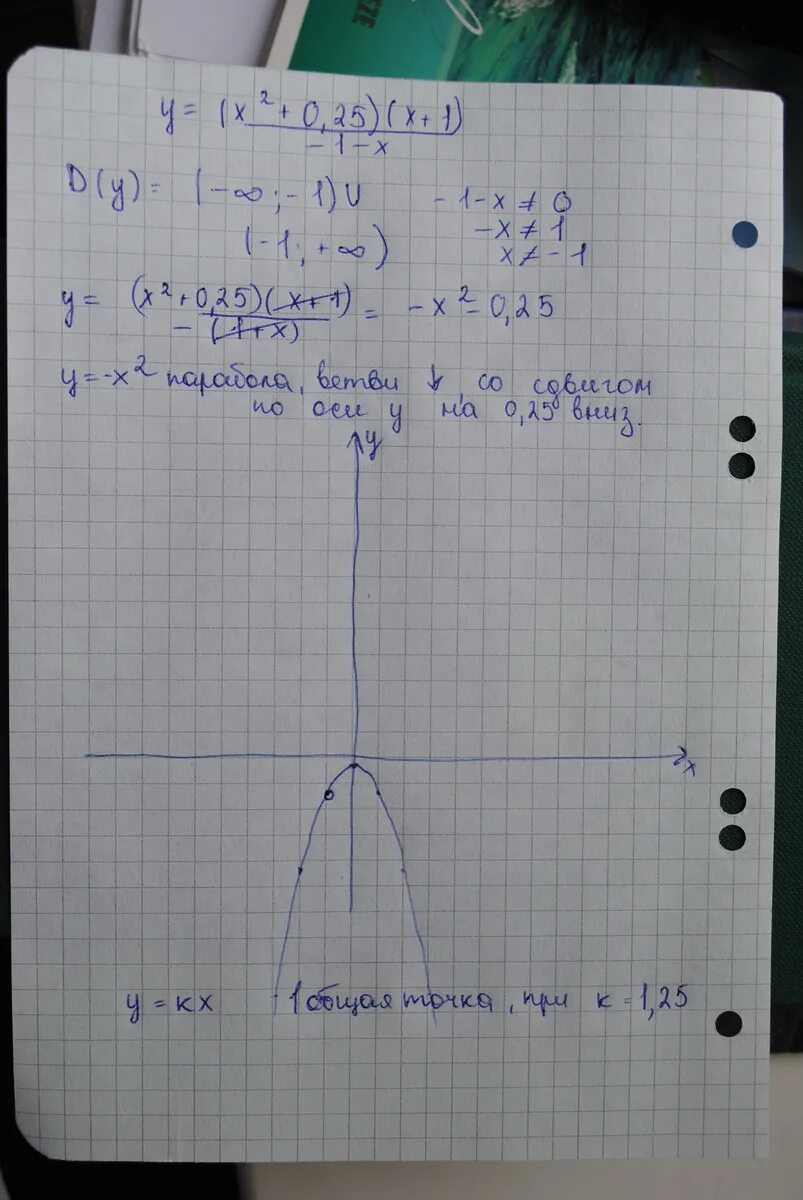 EZE
y = (x² + 0,25)(x + 1) / -1-x
D(y) = (-∞; -1) U
(-1; +∞)
-1-x ≠ 0
-x ≠ 1
x ≠ -1
y = (x² + 0,25)(x+1) / -(1+x) = -x² - 0,25
y = -x² парабола, ветви ↓, со сдвигом
по оси y на 0,25 вниз.
y
x
y = кx 1 общая точка, при к = 1,25